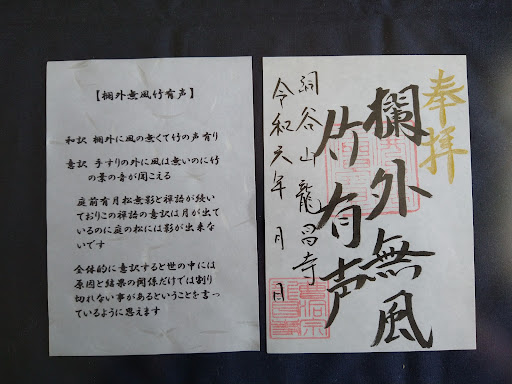 【欄外無風竹有声】
和訳 欄外に風の無くて竹の声有り
意訳 手すりの外に風は無いのに竹
の葉の音が聞こえる
庭前有月松無影と禅語が続い
ておりこの禅語の意訳は月が出て
いるのに庭の松には影が出来な
いです
全体的に意訳すると世の中には
原因と結果の関係だけでは割り
切れない事があるということを言っ
ているように思えます
奉拝
欄外無風
竹有声
洞谷山 龍昌寺
令和六年 月 日